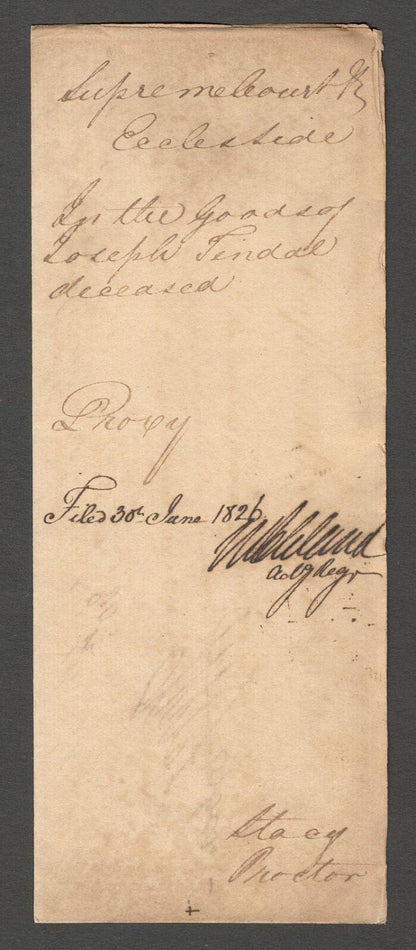 Supreme Court
Eccles Side
In the Goods of
Joseph Tindal
deceased
Proxy
Filed 30th June 1826
Actg Regr
Stacy
Proctor